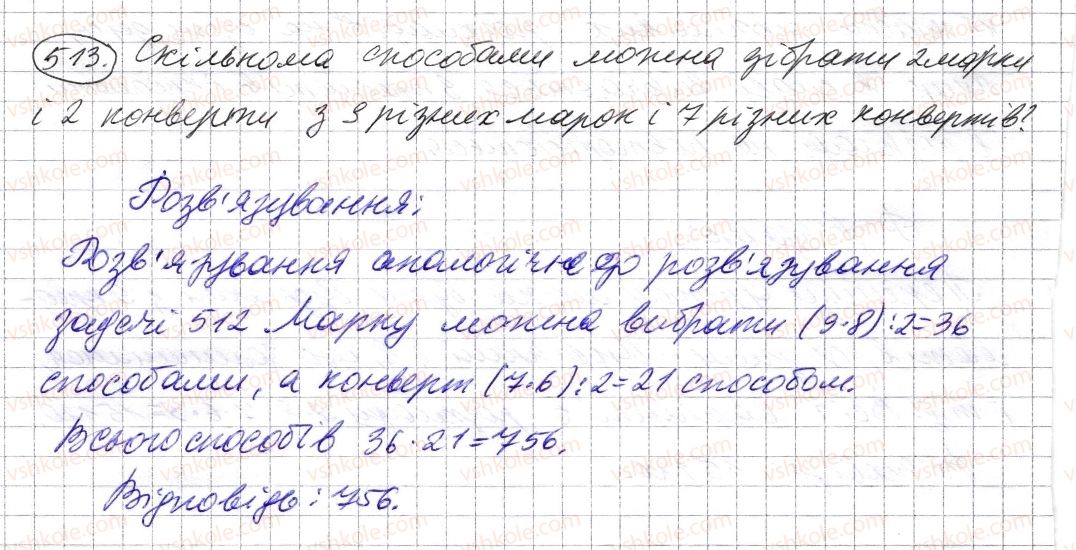 513. Скількома способами можна дібрати 2 марки
і 2 конверти з 9 різних марок і 7 різних конвертів?
Розв'язування:
Розв'язування аналогічне до розв'язування
задачі 512 Марку можна вибрати (9·8):2=36
способами, а конверт (7·6):2=21 способом.
Всього способів 36·21=756.
Відповідь: 756.